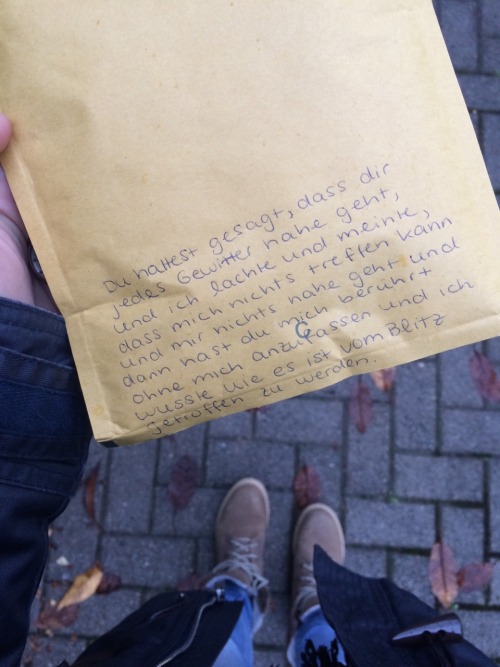 Du hattest gesagt, dass dir
jedes Gewitter nahe geht,
und ich lachte und meinte,
dass mich nichts treffen kann
und mir nichts nahe geht und
dann hast du mich berührt
ohne mich anzufassen und ich
wusste wie es ist vom Blitz
getroffen zu werden.